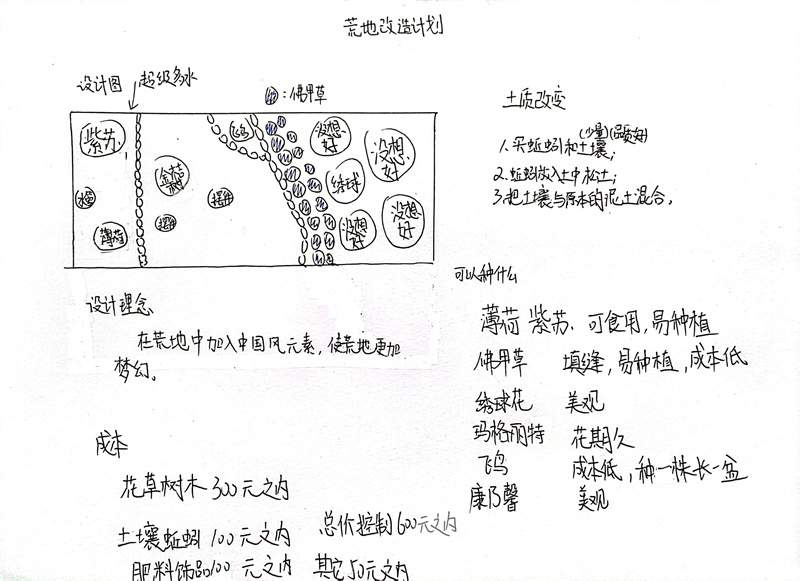 荒地改造计划
设计图
超级多水
:佛甲草
紫苏
薄荷
摆件
摆件
飞鸟
绣球
没想好
没想好
没想好
没想好
土质改变
1.买蚯蚓和土壤(少量)(品质好);
2.蚯蚓放入土中松土;
3.把土壤与原本的泥土混合。
设计理念
在荒地中加入中国风元素,使荒地更加
梦幻。
可以种什么
薄荷 紫苏. 可食用,易种植
佛甲草 填缝,易种植,成本低
绣球花 美观
玛格丽特 花期久
飞鸟 成本低,种一株长一盆
康乃馨 美观
成本
花草树木300元之内
土壤蚯蚓100元之内 总价控制600元之内
肥料饰品100元之内 其它50元之内